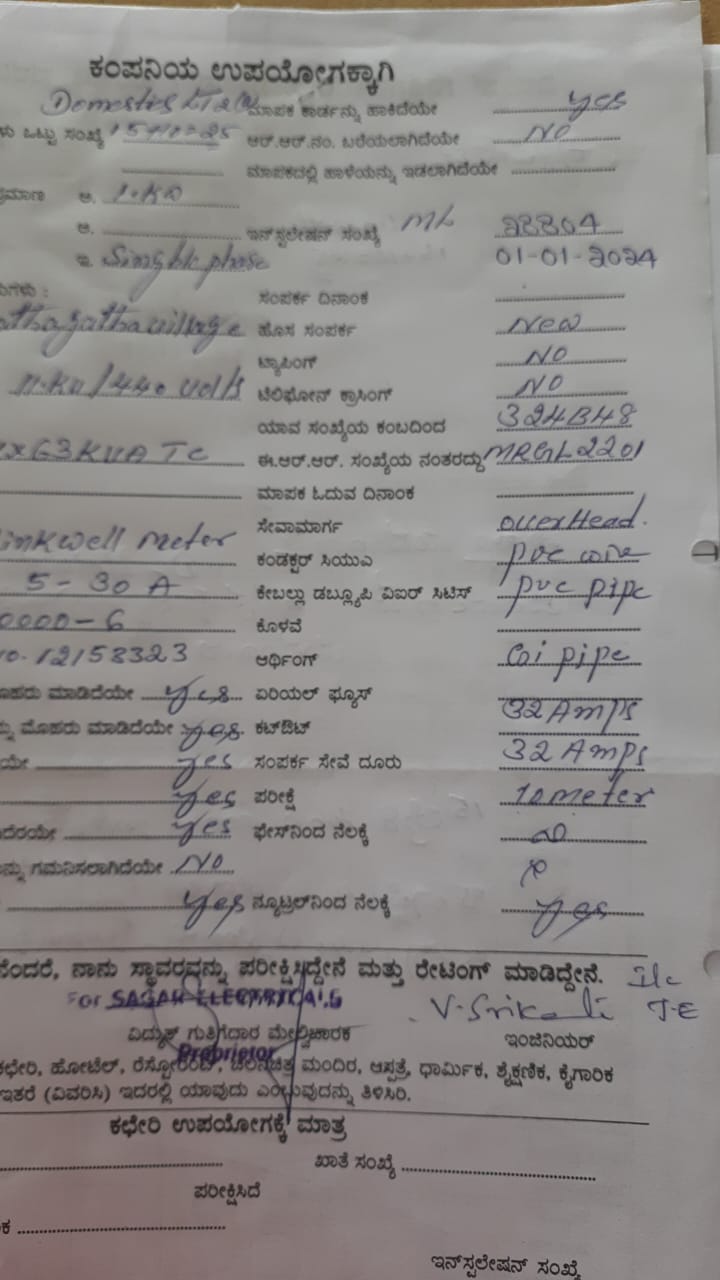 ಕಂಪನಿಯ ಉಪಯೋಗಕ್ಕಾಗಿ
Domestic ಮಾಪಕ ಕಾರ್ಡನ್ನು ಹಾಕಿದೆಯೇ yes
ಒಟ್ಟು ಸಂಖ್ಯೆ ಆರ್.ಆರ್.ನಂ. ಬರೆಯಲಾಗಿದೆಯೇ NO
ಮಾಪಕದಲ್ಲಿ ಹಾಳೆಯನ್ನು ಇಡಲಾಗಿದೆಯೇ
ಅ. 1.KW
ಆ. ಇನ್‌ಸ್ಟಲೇಷನ್ ಸಂಖ್ಯೆ ML 28804
ಇ. Singhle phase 01-01-2024
ಸಂಪರ್ಕ ದಿನಾಂಕ
village ಹೊಸ ಸಂಪರ್ಕ New
ಟ್ಯಾಪಿಂಗ್ NO
11.KV/440 Volts ಟೆಲಿಫೋನ್ ಕ್ರಾಸಿಂಗ್ NO
ಯಾವ ಸಂಖ್ಯೆಯ ಕಂಬದಿಂದ 324B48
x63KVA TC ಈ.ಆರ್.ಆರ್. ಸಂಖ್ಯೆಯ ನಂತರದ್ದು MRGL2201
ಮಾಪಕ ಓದುವ ದಿನಾಂಕ
ಸೇವಾಮಾರ್ಗ overHead.
inkwell meter ಕಂಡಕ್ಟರ್ ಸಿಯುಎ pvc wire
5-30 A ಕೇಬಲ್ಲು ಡಬ್ಲ್ಯೂಪಿ ವಿಐರ್ ಸಿಟಿಸ್ pvc pipe
0000-6 ಕೊಳವೆ
no.12158323 ಆರ್ಥಿಂಗ್ Goi pipe
ಮೊಹರು ಮಾಡಿದೆಯೇ yes ಏರಿಯಲ್ ಫ್ಯೂಸ್ 32 Amps
ಮೊಹರು ಮಾಡಿದೆಯೇ yes ಕಟ್‌ಔಟ್
ಯೇ yes ಸಂಪರ್ಕ ಸೇವೆ ದೂರು 32 Amps
yes ಪರೀಕ್ಷೆ 10 meter
yes ಫೇಸ್‌ನಿಂದ ನೆಲಕ್ಕೆ
ಗಮನಿಸಲಾಗಿದೆಯೇ NO
yes ನ್ಯೂಟ್ರಲ್‌ನಿಂದ ನೆಲಕ್ಕೆ yes
ನೆಂದರೆ, ನಾನು ಸ್ಥಾವರವನ್ನು ಪರೀಕ್ಷಿಸಿದ್ದೇನೆ ಮತ್ತು ರೇಟಿಂಗ್ ಮಾಡಿದ್ದೇನೆ. I/c
For SAGAR ELECTRICALS V. J.E
ವಿದ್ಯುತ್ ಗುತ್ತಿಗೆದಾರ ಮೇಲ್ವಿಚಾರಕ ಇಂಜಿನಿಯರ್
Proprietor
ಕಛೇರಿ, ಹೋಟೆಲ್, ರೆಸ್ಟೋರೆಂಟ್, ಚಲನಚಿತ್ರ ಮಂದಿರ, ಆಸ್ಪತ್ರೆ, ಧಾರ್ಮಿಕ, ಶೈಕ್ಷಣಿಕ, ಕೈಗಾರಿಕ
ಇತರೆ (ವಿವರಿಸಿ) ಇದರಲ್ಲಿ ಯಾವುದು ಎಂಬುವುದನ್ನು ತಿಳಿಸಿರಿ.
ಕಛೇರಿ ಉಪಯೋಗಕ್ಕೆ ಮಾತ್ರ
ಖಾತೆ ಸಂಖ್ಯೆ
ಪರೀಕ್ಷಿಸಿದೆ
ಇನ್‌ಸ್ಪಲೇಷನ್ ಸಂಖ್ಯೆ